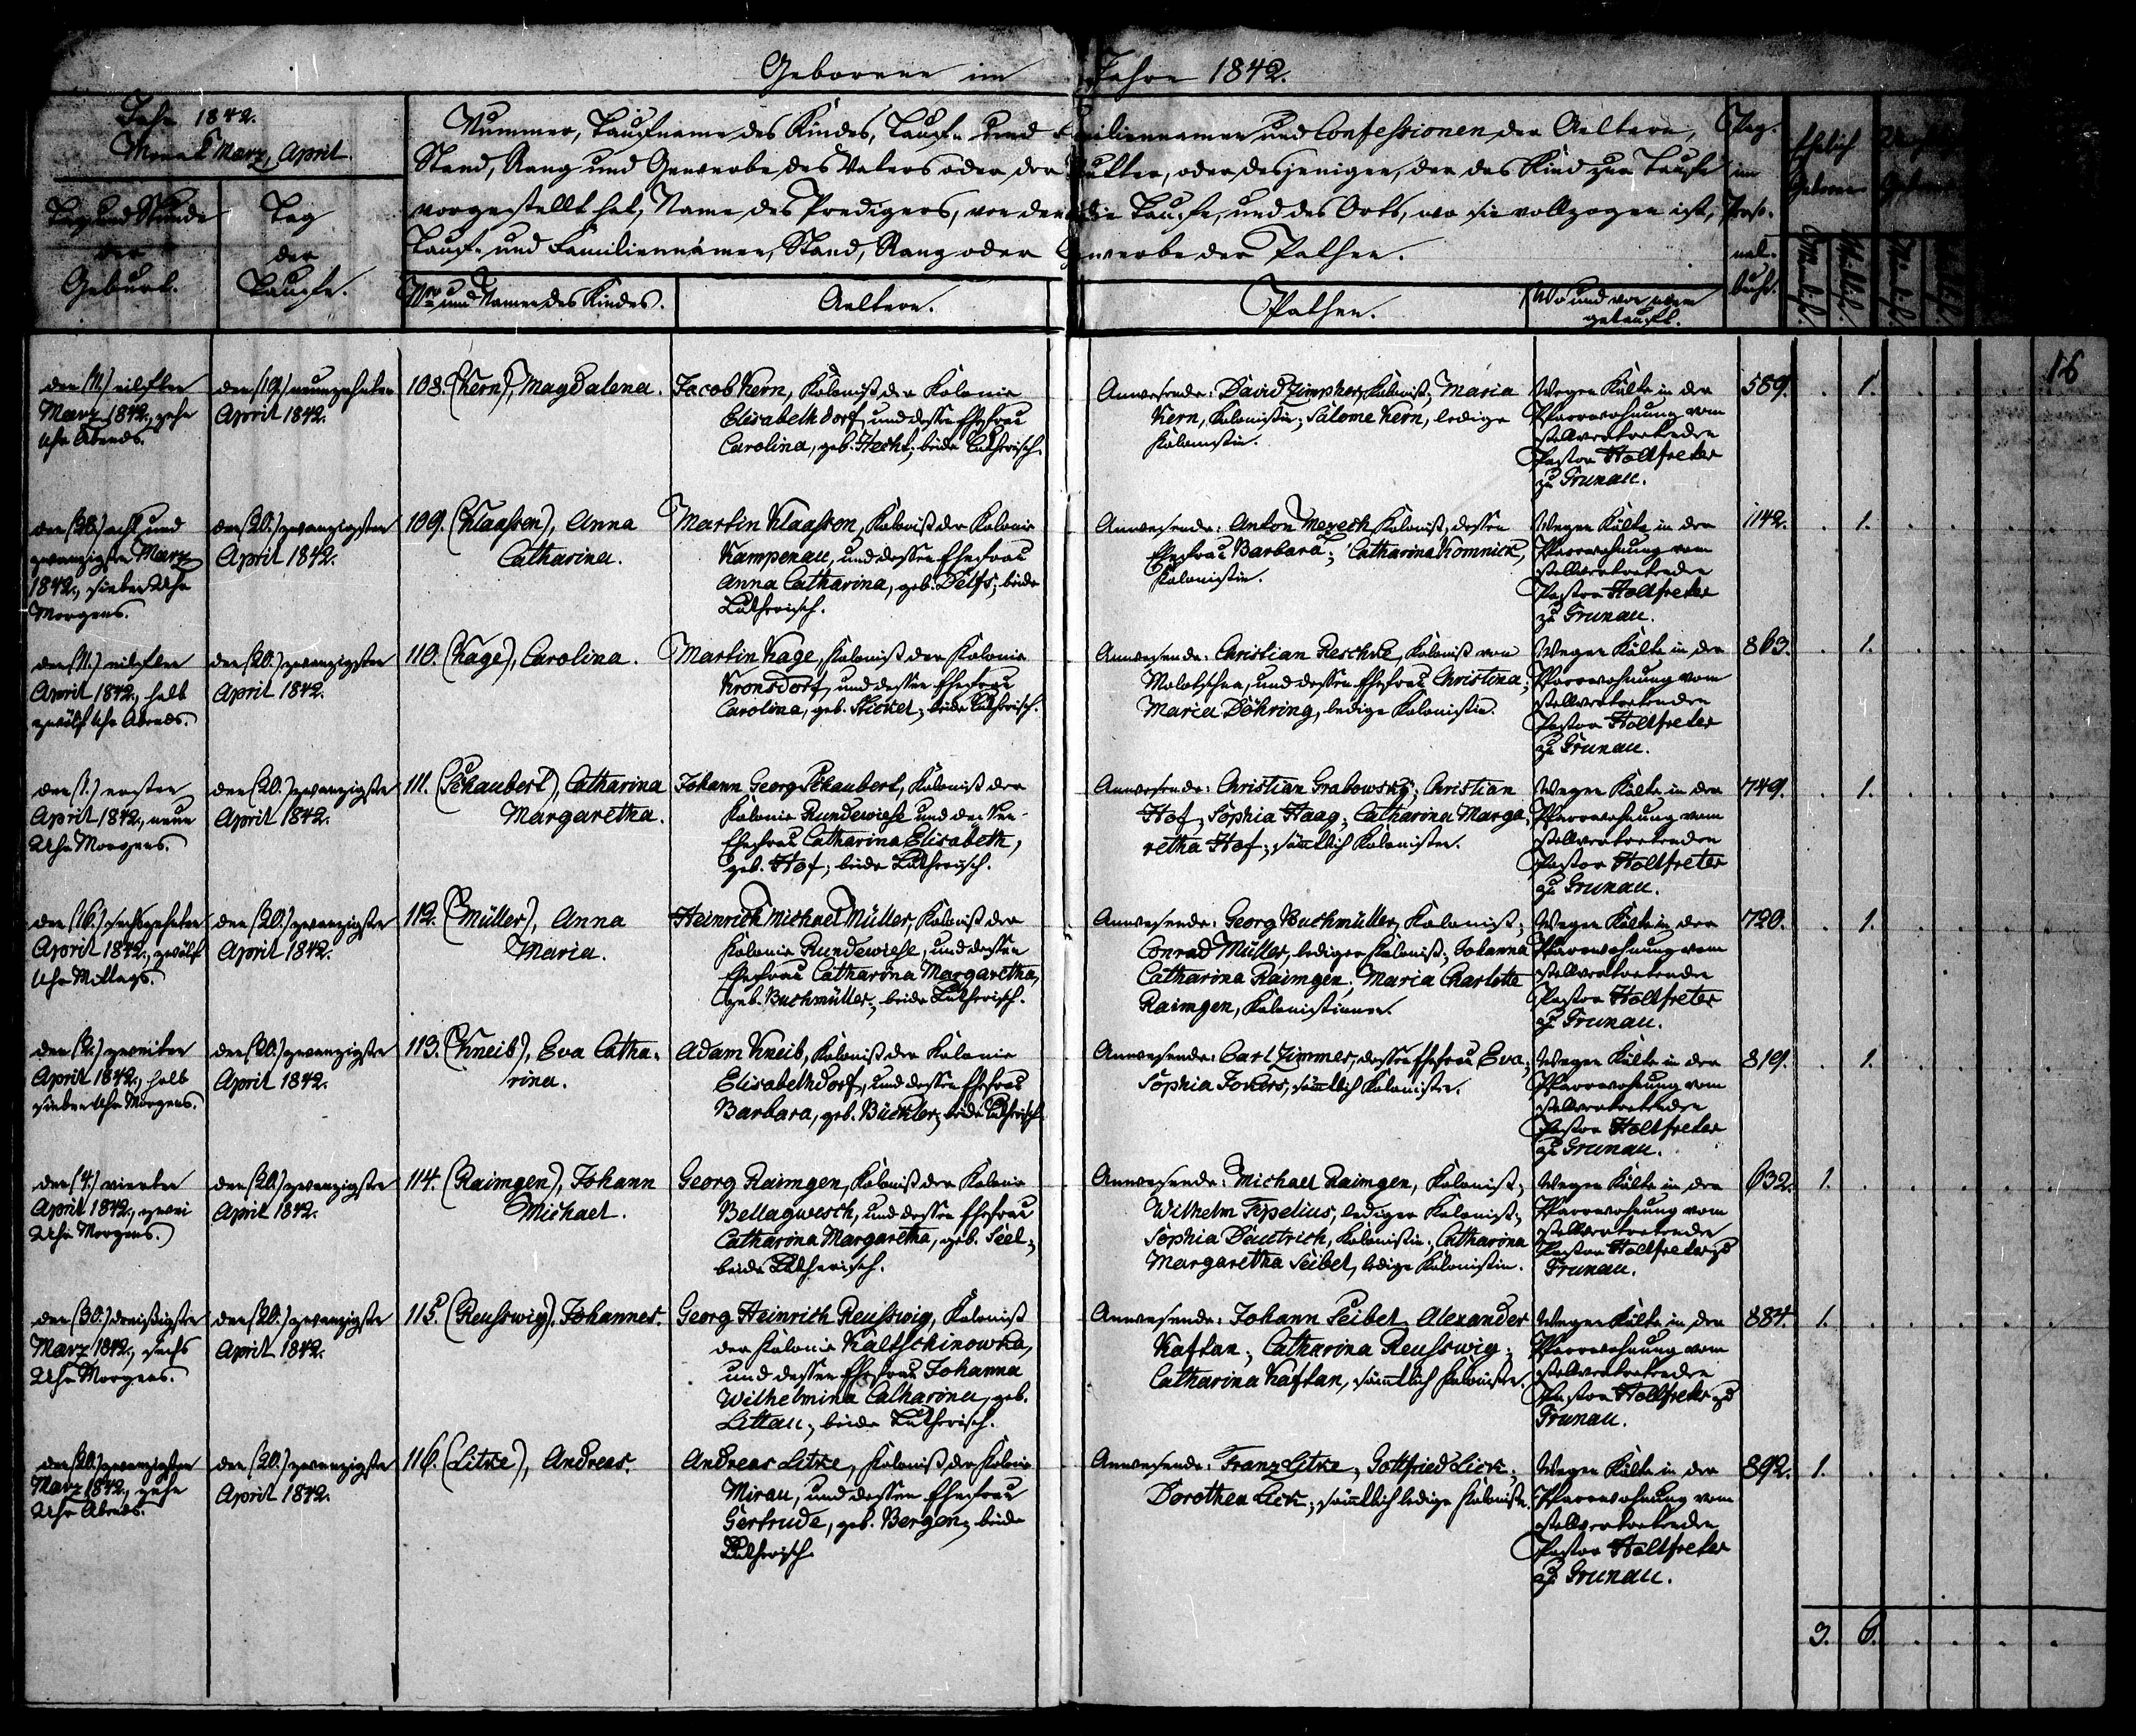 Geborene im Jahre 1842.
Jahr 1842.
Monat Maerz, April.
Tag und Stunde
der
Geburt.
Tag
der
Taufe.
Nummer, Taufname des Kindes, Tauf- und Familiennamen und Confessionen der Aeltern,
Stand, Rang und Gewerbe des Vaters oder der Mutter, oder desjenigen, der das Kind zur Taufe
vorgestellt hat, Name des Predigers, von dem die Taufe, und des Orts, wo sie vollzogen ist,
Tauf- und Familiennamen, Stand, Rang oder Gewerbe der Pathen.
Nro und Namen des Kindes.
Aeltern.
Pathen.
Wo und von wem
getauft.
Pag.
im
Perso-
nal-
buch.
Ehelich
Geborne
Geborne
Männl.
Weibl.
Männl.
Weibl.
16
den (11.) eilften
Maerz 1842., zehn
Uhr Abends.
den (19.) neunzehnten
April 1842.
108. (Kern), Magdalena.
Jacob Kern, Kolonist der Kolonie
Elisabethdorf, und dessen Ehefrau
Carolina, geb. Hecht; beide Lutherisch.
Anwesende: David Zimpher, Kolonist; Maria
Kern, Kolonistin; Salome Kern, ledige
Kolonistin.
Wegen Kälte in der
Pfarrwohnung vom
stellvertretenden
Pastor Holtfreter
zu Grunau.
589. . 1. . . .
den (28.) acht und
zwanzigsten Maerz
1842., sieben Uhr
Morgens.
den (20.) zwanzigsten
April 1842.
109. (Klaassen), Anna
Catharina.
Martin Klaassen, Kolonist der Kolonie
Kampenau, und dessen Ehefrau
Anna Catharina, geb. Delfs; beide
Lutherisch.
Anwesende: Anton Mezech, Kolonist, dessen
Ehefrau Barbara; Catharina Komnick,
Kolonistin.
Wegen Kälte in der
Pfarrwohnung vom
stellvertretenden
Pastor Holtfreter
zu Grunau.
1142. . 1. . . . .
den (11.) eilften
April 1842., halb
zwölf Uhr Abends.
den (20.) zwanzigsten
April 1842.
110. (Kage), Carolina.
Martin Kage, Kolonist der Kolonie
Kronsdorf, und dessen Ehefrau
Carolina, geb. Stickel; beide Lutherisch.
Anwesende: Christian Reschke, Kolonist von
Molotschna, und dessen Ehefrau Christina;
Maria Döhring, ledige Kolonistin.
Wegen Kälte in der
Pfarrwohnung vom
stellvertretenden
Pastor Holtfreter
zu Grunau.
863. . 1. . . . .
den (1.) ersten
April 1842., neun
Uhr Morgens.
den (20.) zwanzigsten
April 1842.
111. (Schaubert), Catharina
Margaretha.
Johann Georg Schaubert, Kolonist der
Kolonie Rundewiese und dessen
Ehefrau Catharina Elisabeth,
geb. Hof; beide Lutherisch.
Anwesende: Christian Grabowsky; Christian
Hof; Sophia Haag; Catharina Marga-
retha Hof; sämtlich Kolonisten.
Wegen Kälte in der
Pfarrwohnung vom
stellvertretenden
Pastor Holtfreter
zu Grunau.
749. . 1. . . . .
den (16.) sechszehnten
April 1842., zwölf
Uhr Mittags.
den (20.) zwanzigsten
April 1842.
112. (Müller), Anna
Maria.
Heinrich Michael Müller, Kolonist der
Kolonie Rundewiese, und dessen
Ehefrau Catharina Margaretha,
geb. Buchmüller; beide Lutherisch.
Anwesende: Georg Buchmüller, Kolonist;
Conrad Müller, lediger Kolonist; Johanna
Catharina Raimgen; Maria Charlotte
Raimgen, Kolonistinnen.
Wegen Kälte in der
Pfarrwohnung vom
stellvertretenden
Pastor Holtfreter
zu Grunau.
720. . 1. . . . .
den (2.) zweiten
April 1842., halb
sieben Uhr Morgens.
den (20.) zwanzigsten
April 1842.
113. (Kneib), Eva Catha-
rina.
Adam Kneib, Kolonist der Kolonie
Elisabethdorf, und dessen Ehefrau
Barbara, geb. Bückler; beide Lutherisch.
Anwesende: Carl Zimmer, dessen Ehefrau Eva;
Sophia Jokers; sämtlich Kolonisten.
Wegen Kälte in der
Pfarrwohnung vom
stellvertretenden
Pastor Holtfreter
zu Grunau.
819. . 1. . . . .
den (4.) vierten
April 1842., zwei
Uhr Morgens.
den (20.) zwanzigsten
April 1842.
114. (Raimgen), Johann
Michael.
Georg Raimgen, Kolonist der Kolonie
Bellagwesch, und dessen Ehefrau
Catharina Margaretha, geb. Seel;
beide Lutherisch.
Anwesende: Michael Raimgen, Kolonist;
Wilhelm Topelius, lediger Kolonist;
Sophia Dautrich, Kolonistin; Catharina
Margaretha Seibel, ledige Kolonistin.
Wegen Kälte in der
Pfarrwohnung vom
stellvertretenden
Pastor Holtfreter zu
Grunau.
632. 1. . . . . .
den (30.) dreißigsten
Maerz 1842., sechs
Uhr Morgens.
den (20.) zwanzigsten
April 1842.
115. (Reusswig), Johannes.
Georg Heinrich Reusswig, Kolonist
der Kolonie Kaltschinowka,
und dessen Ehefrau Johanna
Wilhelmina Catharina, geb.
Littau; beide Lutherisch.
Anwesende: Johann Seibel; Alexander
Kaftan; Catharina Reusswig;
Catharina Kaftan, sämtlich Kolonisten.
Wegen Kälte in der
Pfarrwohnung vom
stellvertretenden
Pastor Holtfreter zu
Grunau.
884. 1. . . . . .
den (20.) zwanzigsten
Maerz 1842., zehn
Uhr Abends.
den (20.) zwanzigsten
April 1842.
116. (Litke), Andreas.
Andreas Litke, Kolonist der Kolonie
Mirau, und dessen Ehefrau
Gertrude, geb. Bergen; beide
Lutherisch.
Anwesende: Franz Litke; Gottfried Lick;
Dorothea Lick; sämtlich ledige Kolonisten.
Wegen Kälte in der
Pfarrwohnung vom
stellvertretenden
Pastor Holtfreter
zu Grunau.
892. 1. . . . . .
3. 6. . . . .